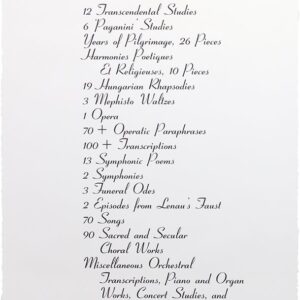 12 Transcendental Studies
6 Paganini Studies
Years of Pilgrimage, 26 Pieces
Harmonies Poetiques
Et Religieuses, 10 Pieces
19 Hungarian Rhapsodies
3 Mephisto Waltzes
1 Opera
70 + Operatic Paraphrases
100 + Transcriptions
13 Symphonic Poems
2 Symphonies
3 Funeral Odes
2 Episodes from Lenau's Faust
70 Songs
90 Sacred and Secular
Choral Works
Miscellaneous Orchestral
Transcriptions, Piano and Organ
Works, Concert Studies, and